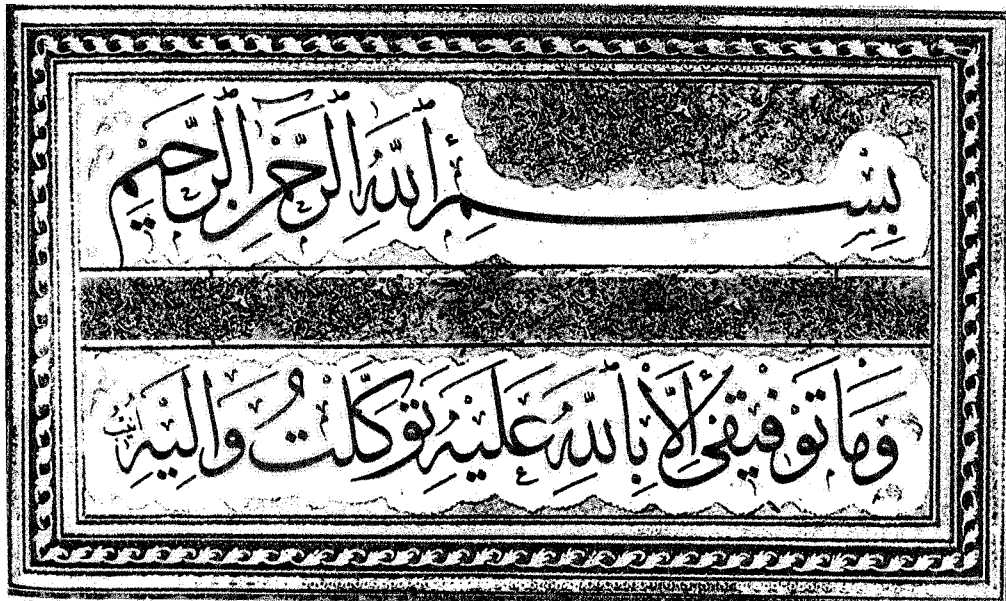 بِسْمِ ٱللَّهِ ٱلرَّحْمٰنِ ٱلرَّحِيمِ
وَمَا تَوْفِيقِى إِلَّا بِٱللَّهِ عَلَيْهِ تَوَكَّلْتُ وَإِلَيْهِ أُنِيبُ